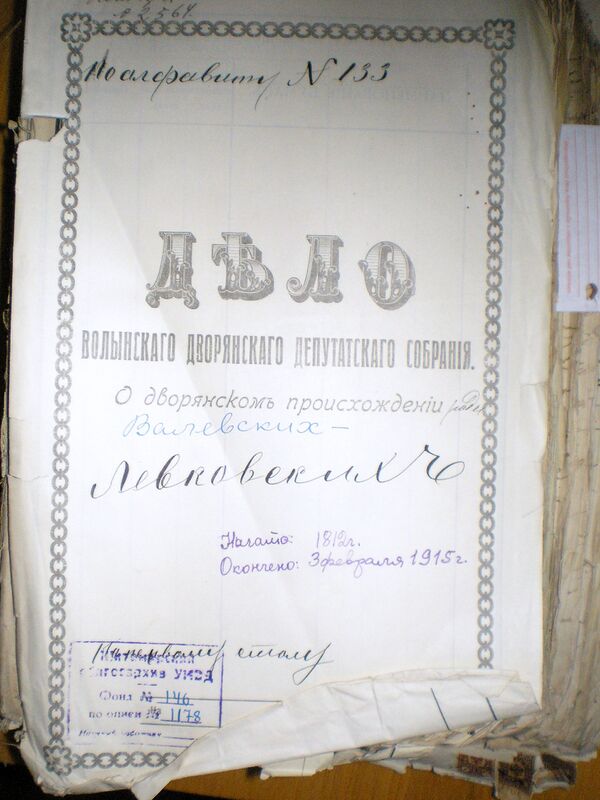 № 2564
По алфавиту N 133
ДѢЛО
ВОЛЫНСКАГО ДВОРЯНСКАГО ДЕПУТАТСКАГО СОБРАНІЯ.
О дворянскомъ происхожденіи рода
Валевских-
Левковскихъ
Начато: 1812г.
Окончено: 3 февраля 1915г.
По первому столу
Житомирский
облгосархив УМВД
Фонд № 146
по описи № 1178